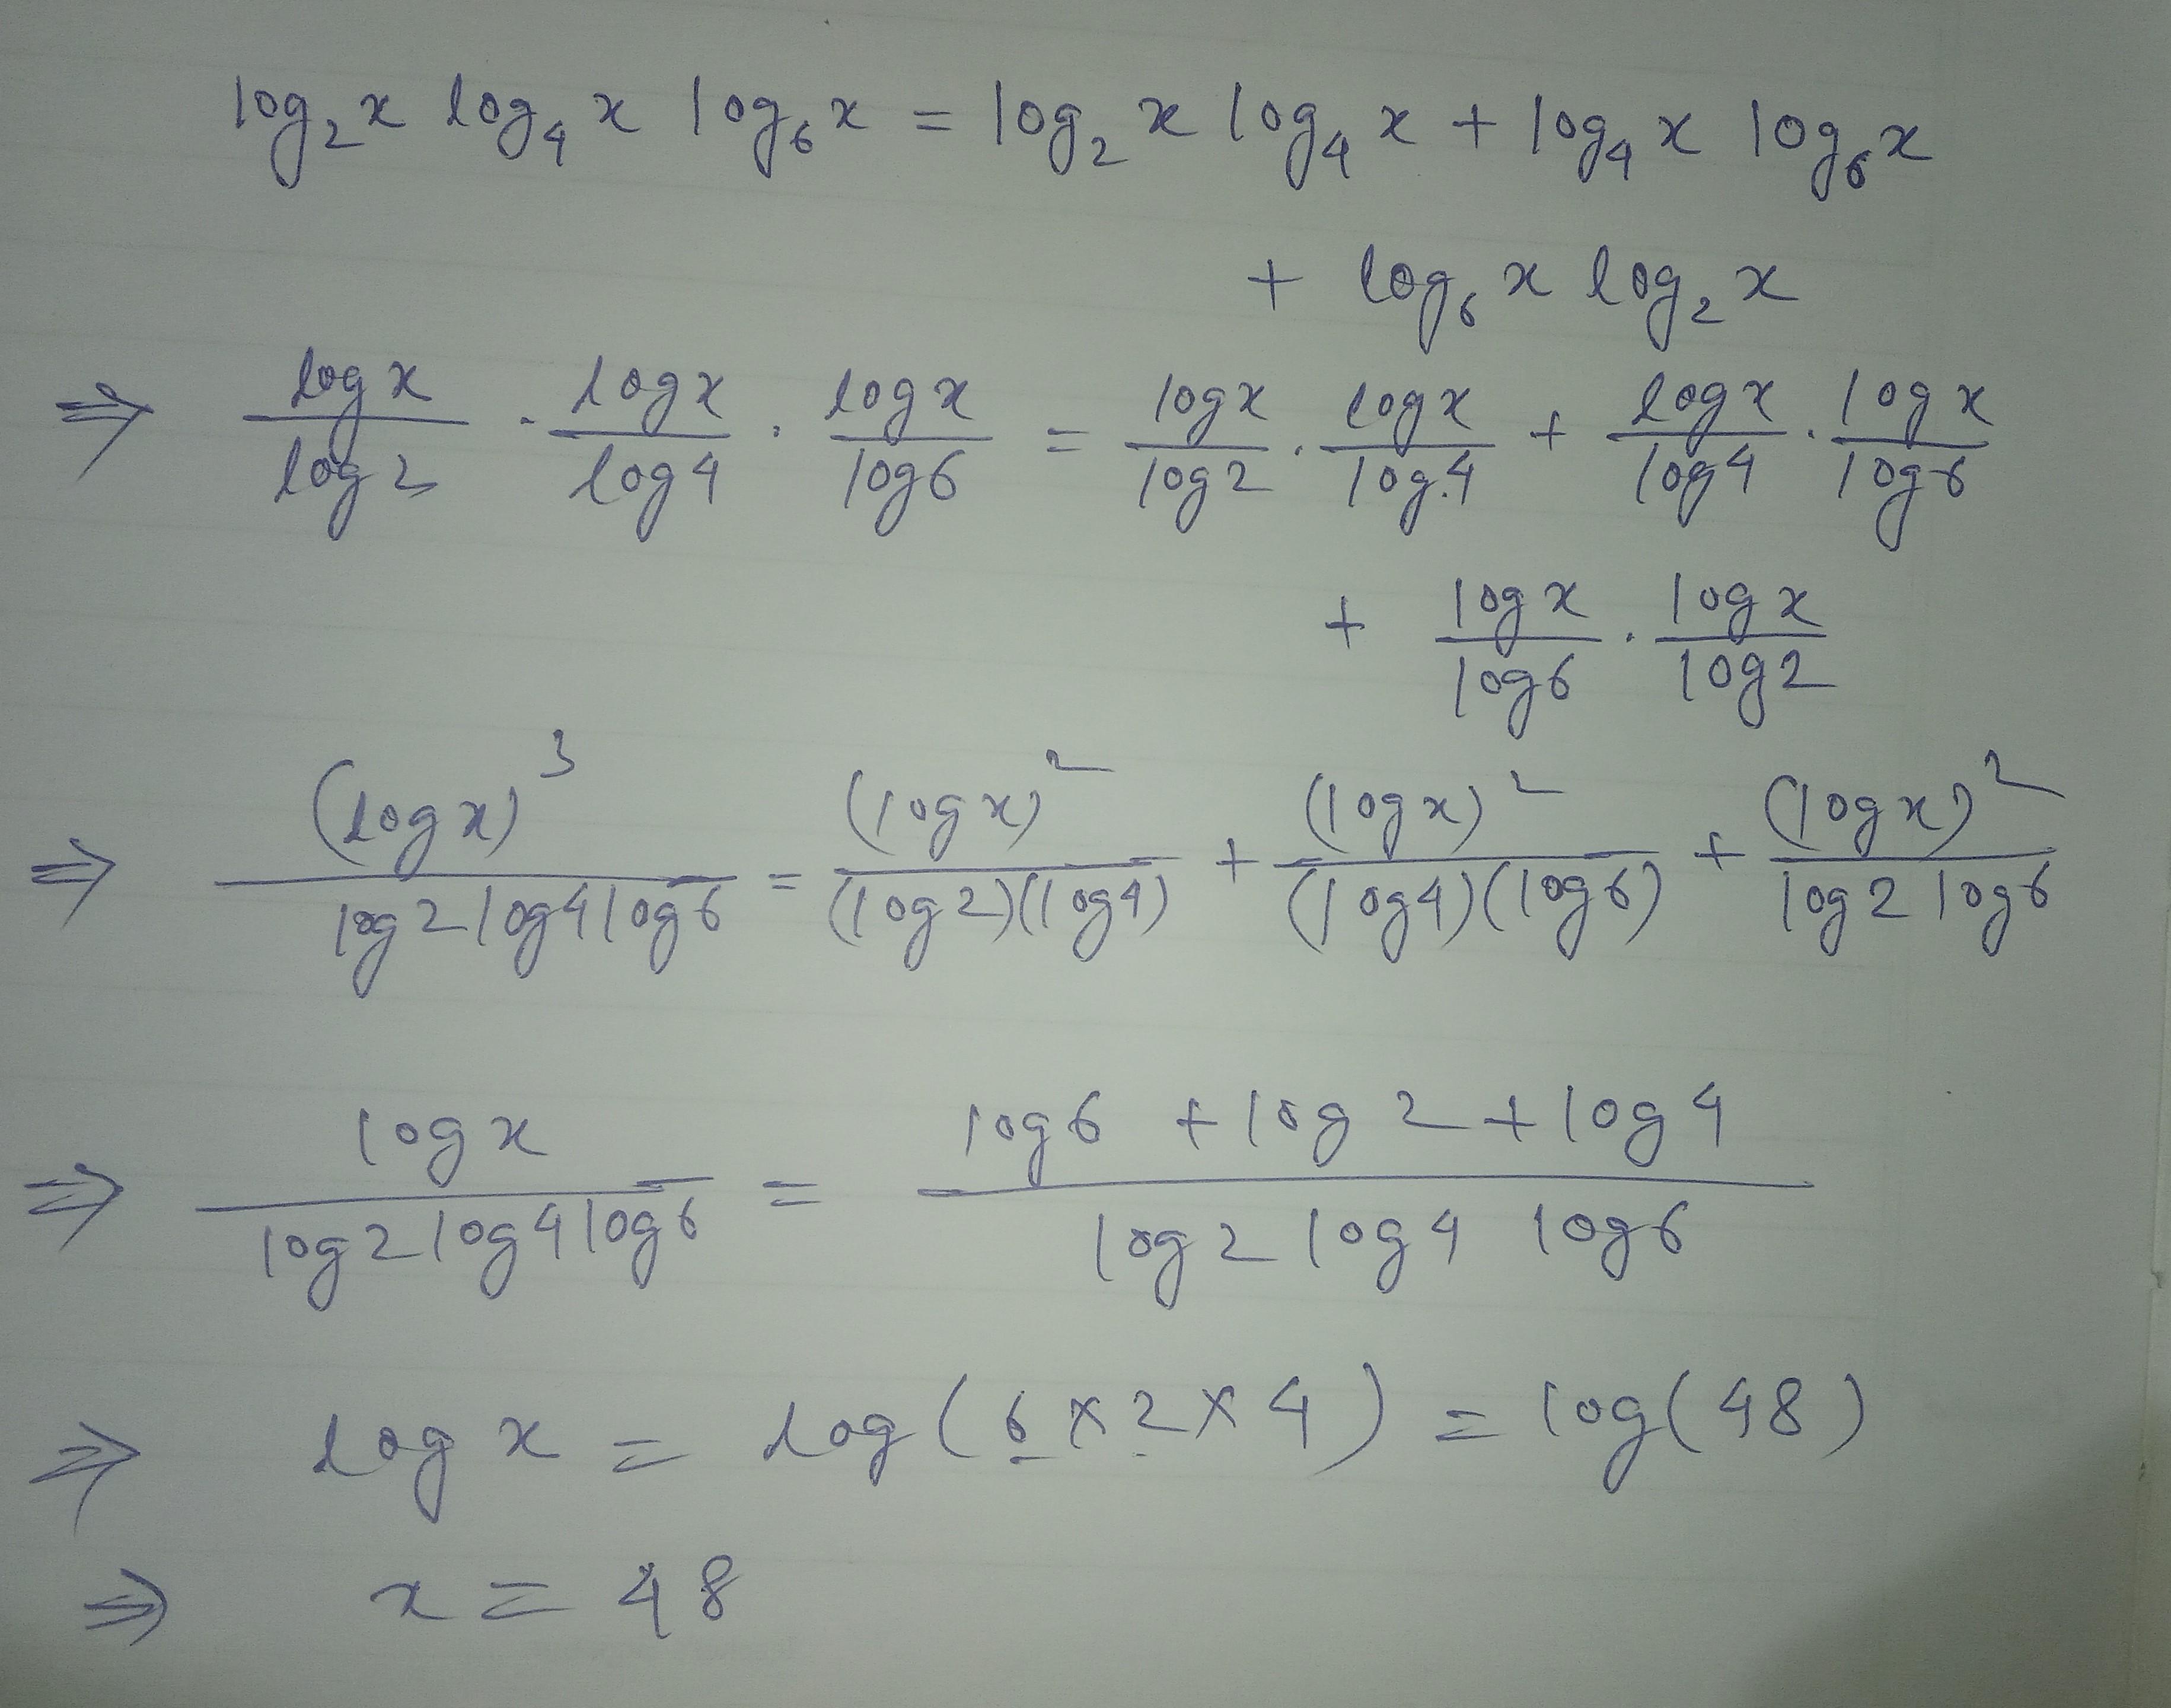 log₂x log₄x log₆x = log₂x log₄x + log₄x log₆x
+ log₆x log₂x
⇒ (log x)/(log 2) · (log x)/(log 4) · (log x)/(log 6) = (log x)/(log 2) · (log x)/(log 4) + (log x)/(log 4) · (log x)/(log 6)
+ (log x)/(log 6) · (log x)/(log 2)
⇒ (log x)³/(log 2 log 4 log 6) = (log x)²/((log 2)(log 4)) + (log x)²/((log 4)(log 6)) + (log x)²/(log 2 log 6)
⇒ (log x)/(log 2 log 4 log 6) = (log 6 + log 2 + log 4)/(log 2 log 4 log 6)
⇒ log x = log (6 × 2 × 4) = log (48)
⇒ x = 48